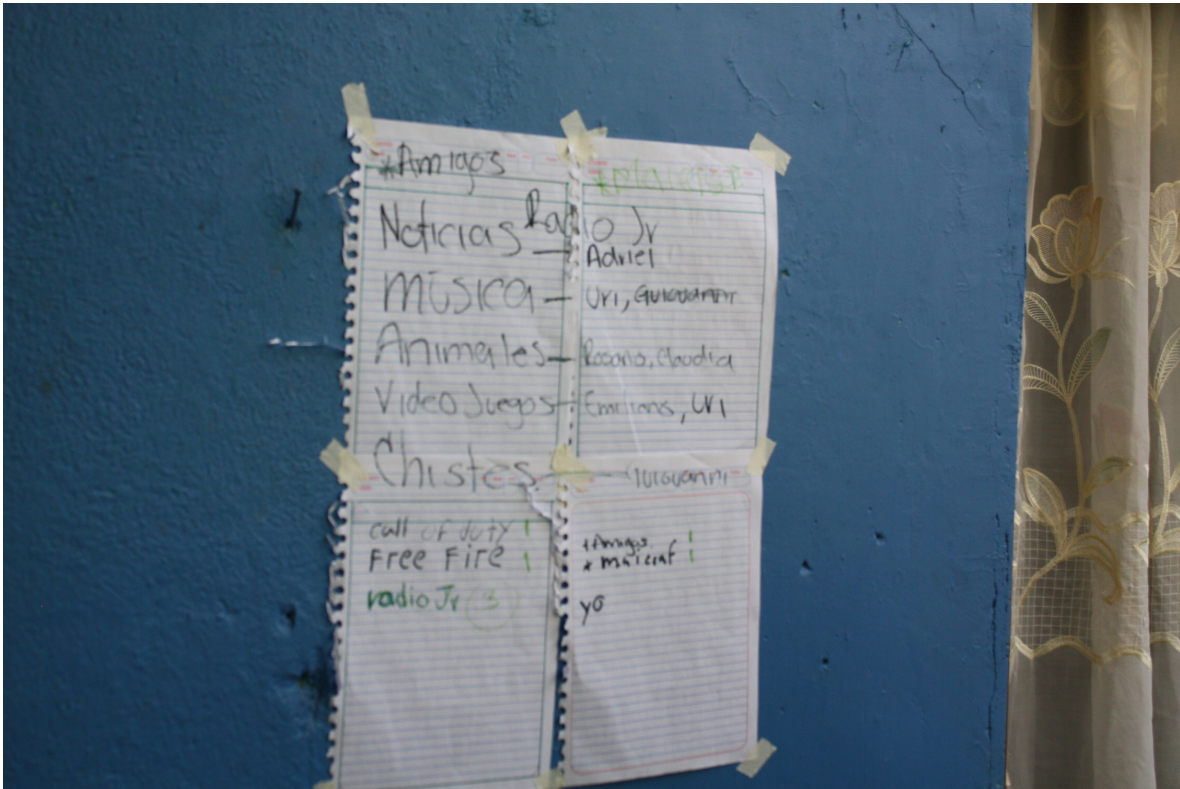 *Amigos
Radio Jr
Noticias — Adriel
Música — Uri, Guiovanni
Animales — Rosario, Claudia
Video Juegos — Emiliano, Uri
Chistes — Guiovanni
call of duty |
Free Fire |
radio Jr (3)
*Amigos |
* |
yo